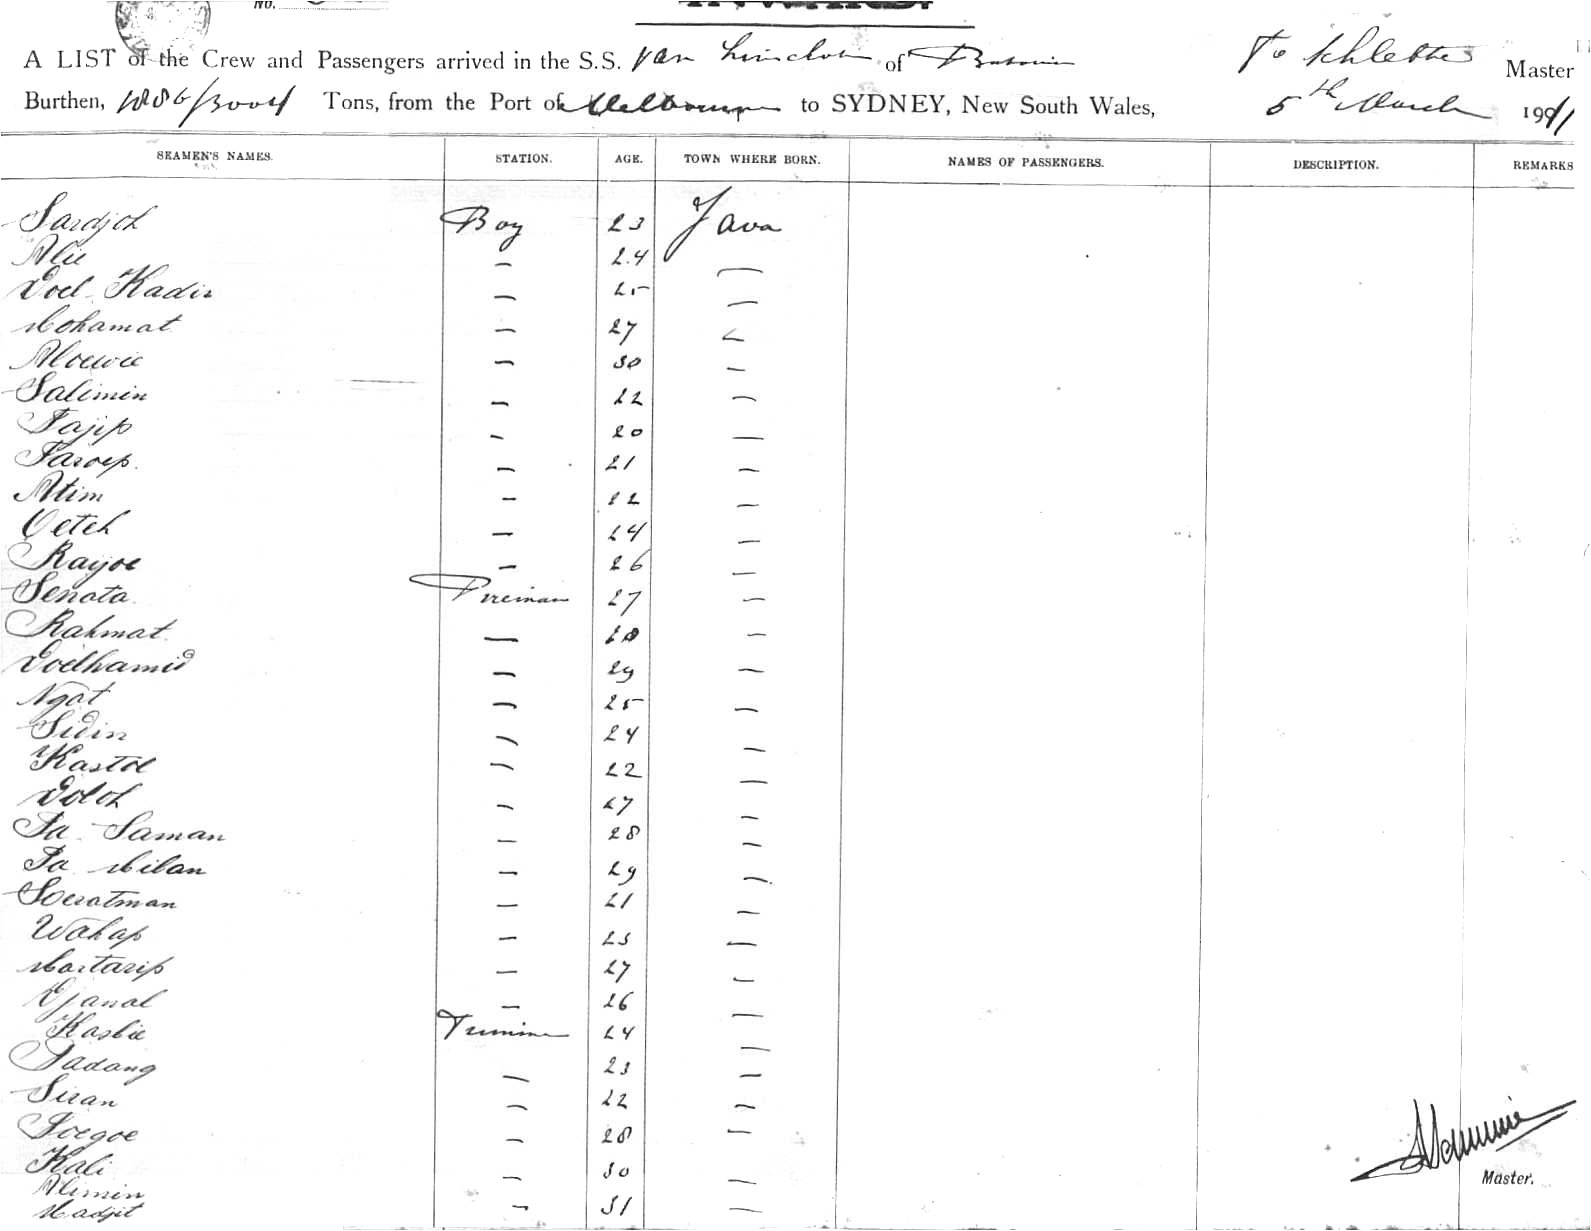 No.
INWARD.
A LIST of the Crew and Passengers arrived in the S.S. Van Linschoten of Batavia To Schletter Master
Burthen, 1886/3004 Tons, from the Port of Melbourne to SYDNEY, New South Wales, 5th March 1911
SEAMEN'S NAMES. STATION. AGE. TOWN WHERE BORN. NAMES OF PASSENGERS. DESCRIPTION. REMARKS
Sardjoh Boy 23 Java
Alie — 24 —
Doel Kadir — 25 —
Mohamat — 27 —
Aloewie — 30 —
Salimin — 22 —
Tajip — 20 —
Taroep. — 21 —
Atim — 22 —
Oeteh — 24 —
Rayoe — 26 —
Senata Fireman 27 —
Rahmat — 28 —
Doelhamid — 29 —
Ngat — 25 —
Sidin — 24 —
Kastoe — 22 —
Doloh — 27 —
Pa Saman — 28 —
Pa Milan — 29 —
Soeratman — 21 —
Wahap — 23 —
Martarip — 27 —
Djanal — 26 —
Kasbie Trimmer 24 —
Padang — 23 —
Siran — 22 —
Soegoe — 28 —
Kali — 30 —
Alimin
Madjit — 31 —
Master.